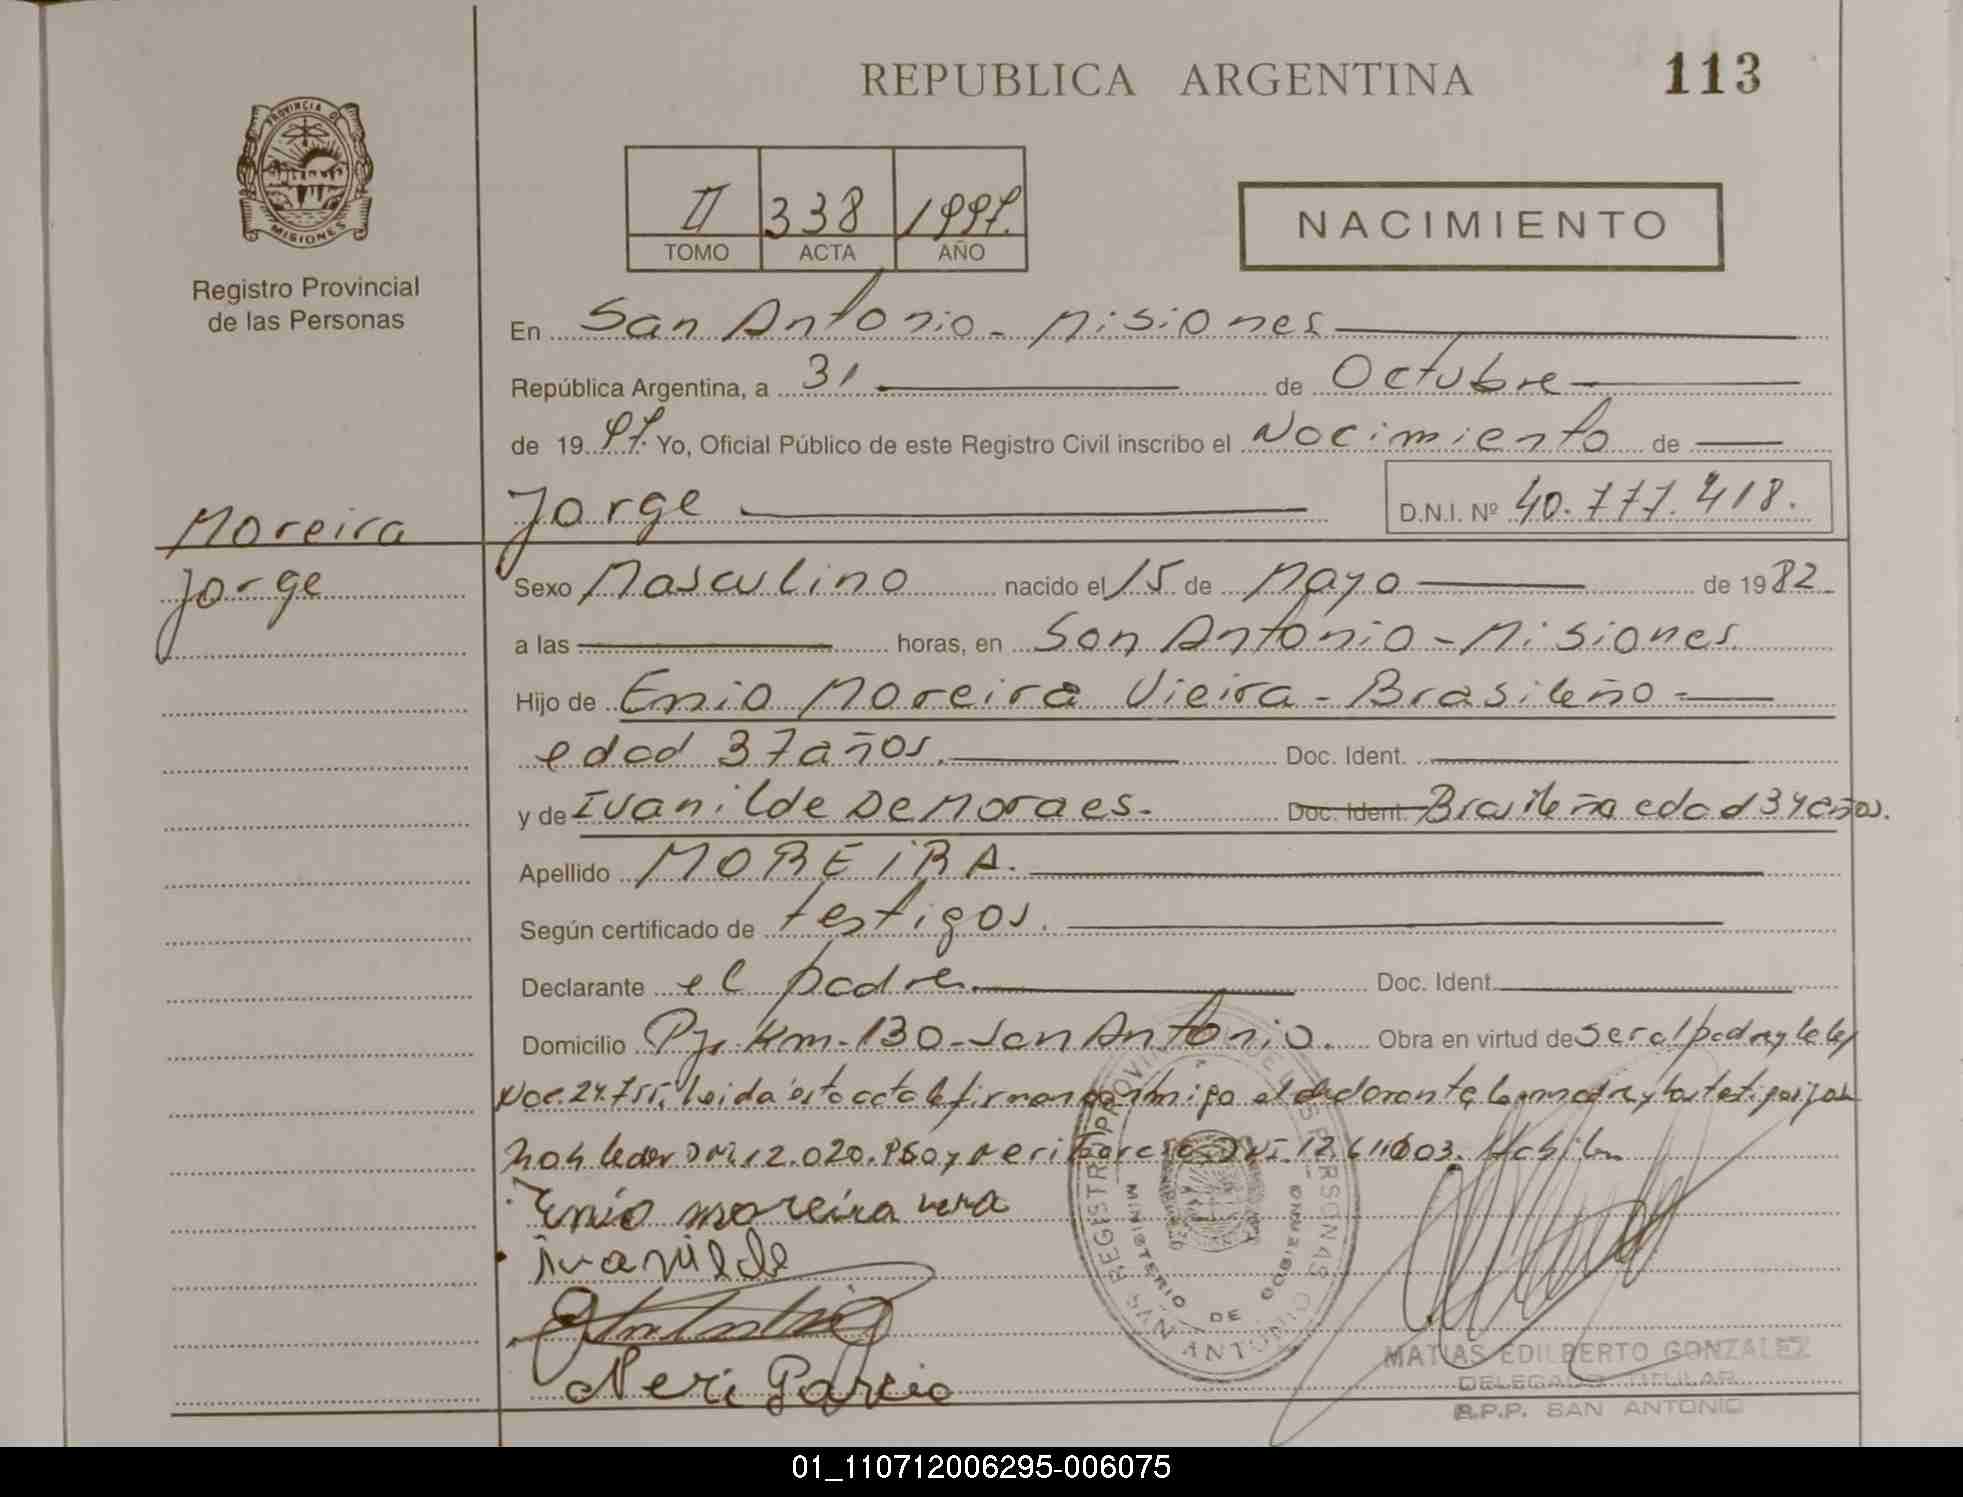 REPUBLICA ARGENTINA
113
PROVINCIA DE
MISIONES
Registro Provincial
de las Personas
II 338 1997.
TOMO ACTA AÑO
NACIMIENTO
En San Antonio - Misiones
República Argentina, a 31 de Octubre
de 19 97. Yo, Oficial Público de este Registro Civil inscribo el Nacimiento de
Jorge D.N.I. Nº 40.777.418.
Moreira
Jorge
Sexo Masculino nacido el 15 de Mayo de 19 82
a las horas, en San Antonio - Misiones.
Hijo de Enio Moreira Vieira - Brasileño -
edad 37 años. Doc. Ident.
y de Ivanilde De Moraes. Doc. Ident. Brasileña edad 34 años.
Apellido MOREIRA.
Según certificado de testigos.
Declarante el padre. Doc. Ident.
Domicilio Pje. Km - 130 - San Antonio. Obra en virtud de ser el padre y la ley
Nac. 24.755, leida esta acta la firman conmigo el declarante, la madre y los testigos
DNI. 12.020. y Neri Garcia DNI. 12.611003.
Enio moreira
ivanilde
Neri Garcia
REGISTRO PROVINCIAL DE LAS PERSONAS
MINISTERIO DE GOBIERNO
SAN ANTONIO
MATIAS EDILBERTO GONZALEZ
DELEGADO TITULAR
R.P.P. SAN ANTONIO
01_110712006295-006075